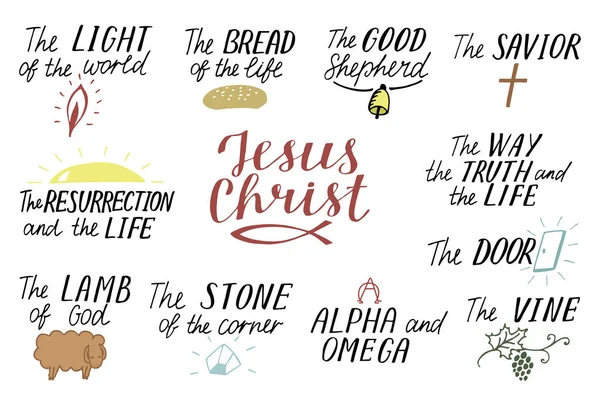 The LIGHT
of the world
The BREAD
of the life
The GOOD
Shepherd
The SAVIOR
Jesus
Christ
The WAY
the TRUTH and
the LIFE
The RESURRECTION
and the LIFE
The DOOR
The LAMB
of God
The STONE
of the corner
ALPHA and
OMEGA
The VINE